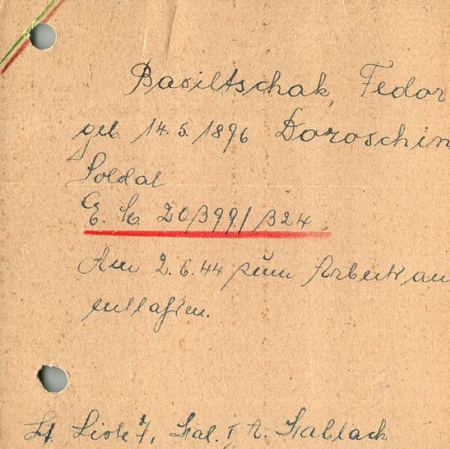 Basiltschak, Fedor
geb. 14.5.1896 Doroschin
Soldat
E. K. 20/399/324.
Am 2.6.44 zum Arbeit
entlassen.
Lt Liste 7, A. Stablack